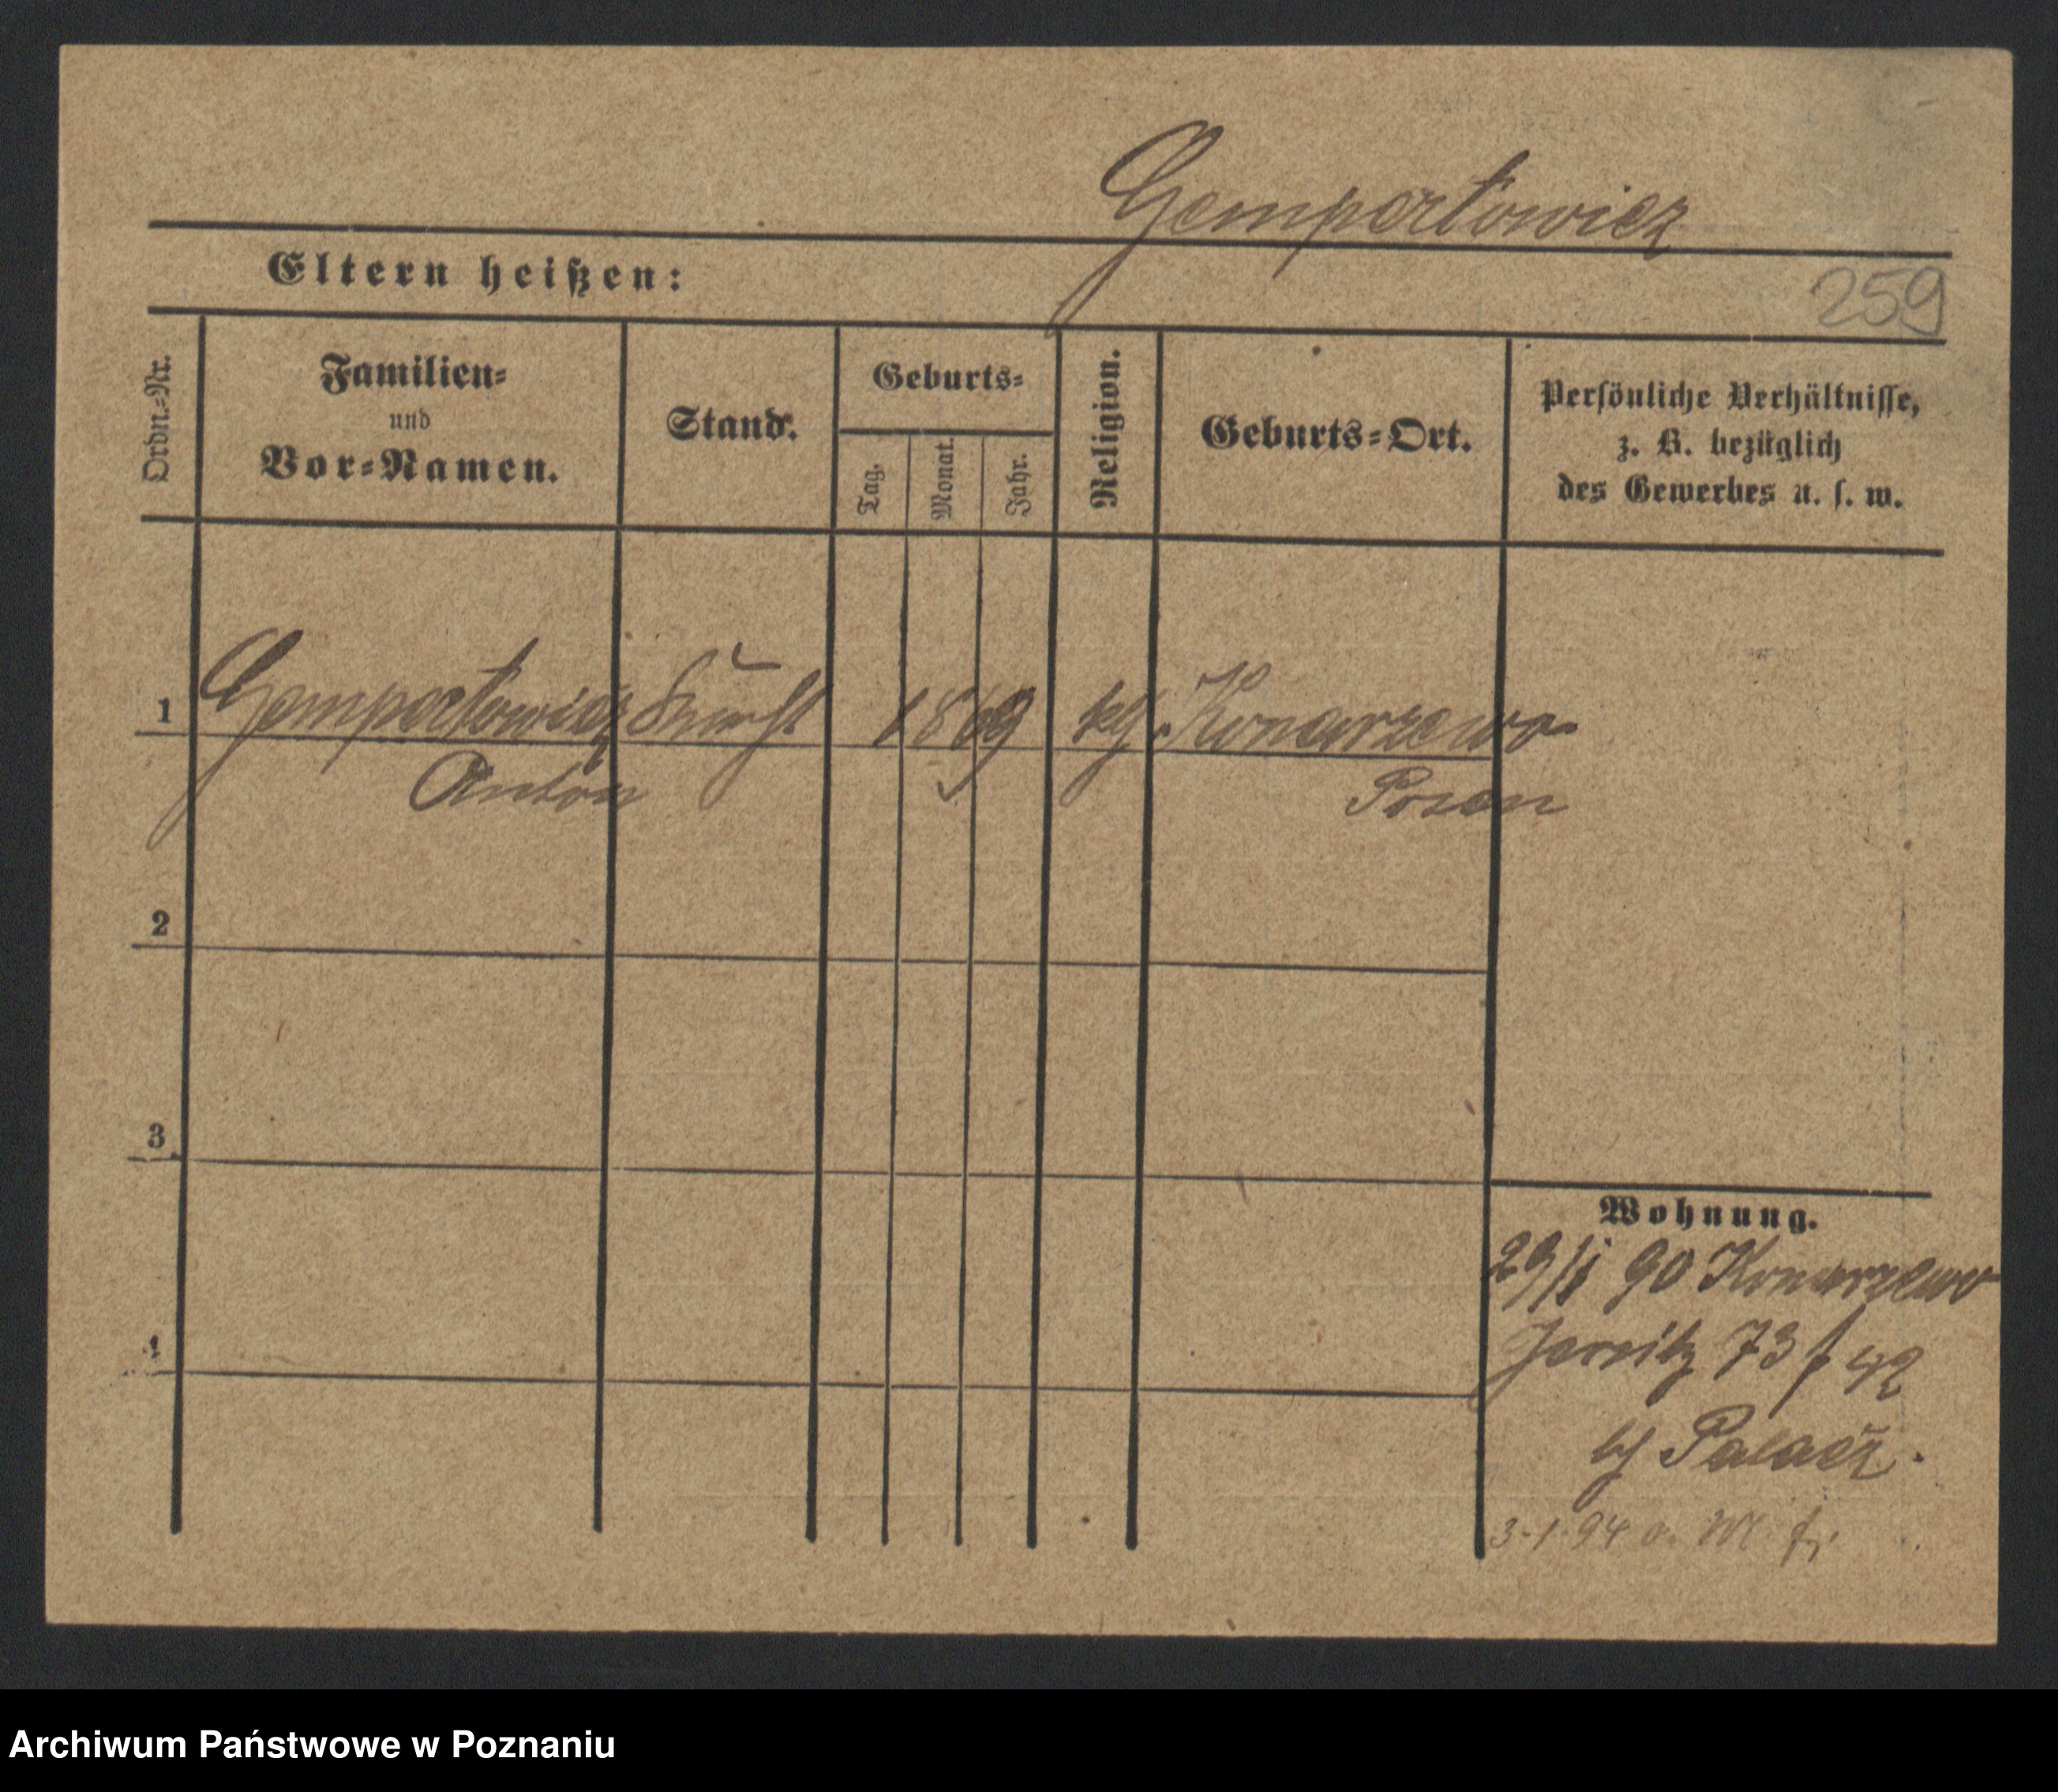 Gempertowicz
Eltern heißen:
259
Ordn.-Nr.
Familien-
und
Vor-Namen.
Stand.
Geburts-
Tag.
Monat.
Jahr.
Religion.
Geburts-Ort.
Persönliche Verhältnisse,
z. B. bezüglich
des Gewerbes u. s. w.
1 Gempertowicz 1869 kg. Konarzewo
Anton Posen
2
3
4
Wohnung.
90 Konarzewo
Jersitz 73
Palacz.
3-1-94
Archiwum Państwowe w Poznaniu